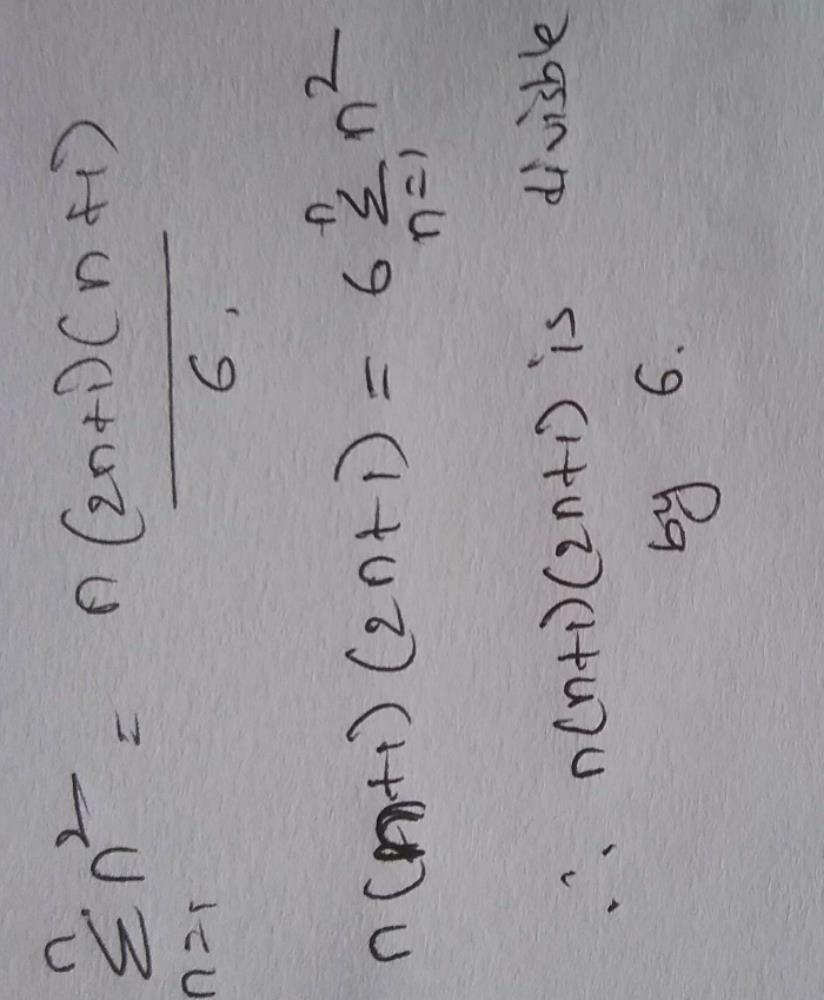 n
Σ n² = n(2n+1)(n+1)
n=1 6.
n(n+1)(2n+1) = 6 n Σ n=1 n²
∴ n(n+1)(2n+1) is divisble
by 6.